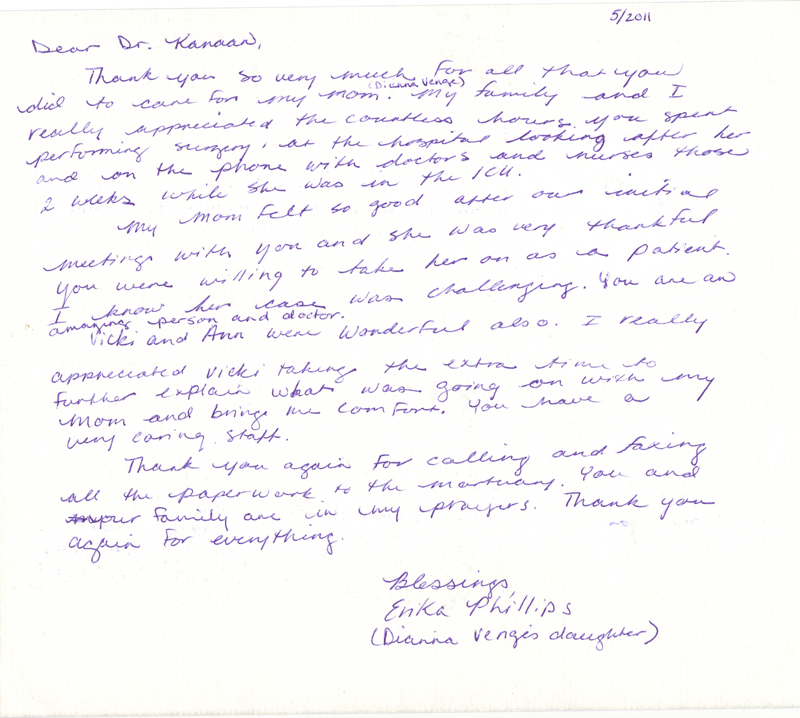 5/2011
Dear Dr. Kanaan,
Thank you so very much for all that you
(Dianna Venge)
did to care for my mom. My family and I
really appreciated the countless hours you spent
performing surgery, at the hospital looking after her
and on the phone with doctors and nurses those
2 weeks while she was in the ICU.
My mom felt so good after our initial
meetings with you and she was very thankful
you were willing to take her on as a patient.
I know her case was challenging. You are an
amazing person and doctor.
Vicki and Ann were wonderful also. I really
appreciated Vicki taking the extra time to
further explain what was going on with my
mom and bring me comfort. You have a
very caring staff.
Thank you again for calling and faxing
all the paperwork to the mortuary. You and
your family are in my prayers. Thank you
again for everything.
Blessings,
Erika Phillips
(Dianna Venge's daughter)